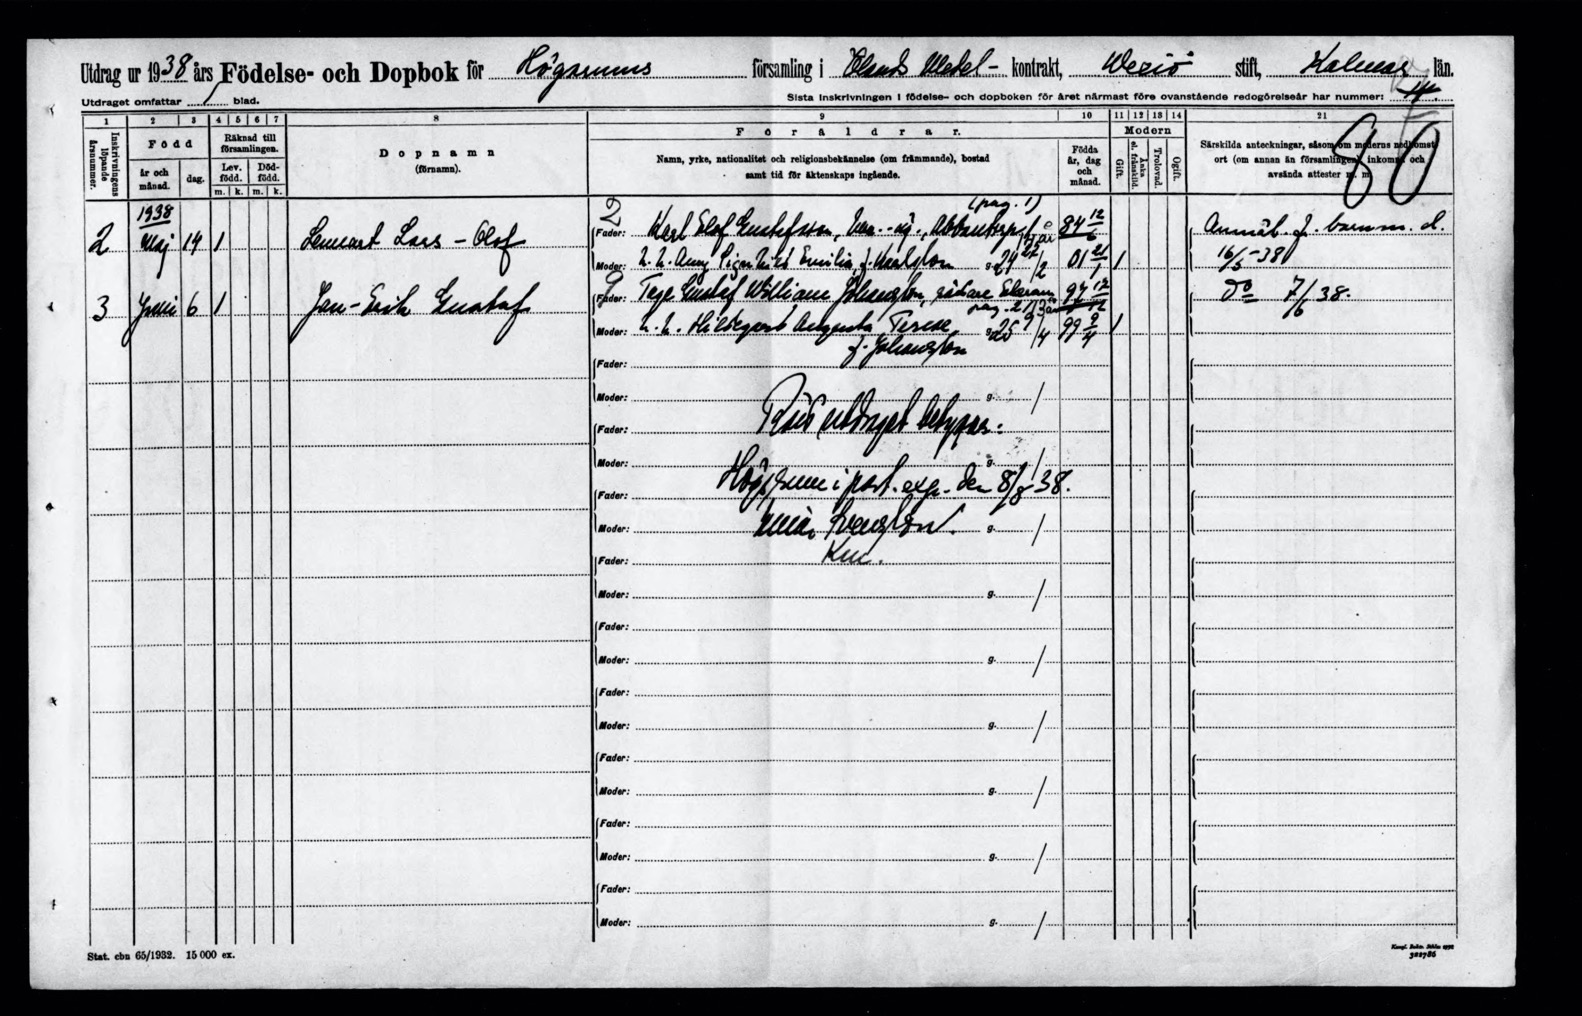 Utdrag ur 1938 års Födelse- och Dopbok för Högsrums församling i Ölands Medel- kontrakt, Wexiö stift, Kalmar län.
Utdraget omfattar 1 blad.
Sista inskrivningen i födelse- och dopboken för året närmast före ovanstående redogörelseår har nummer:
80
1 2 3 4 5 6 7 8 9 10 11 12 13 14 21
Inskrivningens löpande årsnummer.
Född
år och månad.
dag.
Räknad till församlingen.
Lev. född.
Död- född.
m. k. m. k.
Dopnamn
(förnamn).
Föräldrar.
Namn, yrke, nationalitet och religionsbekännelse (om främmande), bostad
samt tid för äktenskaps ingående.
Födda år, dag och månad.
Modern
Gift.
Änka el. frånskild.
Trolovad.
Ogift.
Särskilda anteckningar, såsom om moderns nedkomst-
ort (om annan än församlingen), inkomna och
avsända attester m. m.
1938
(pag. 1)
2 Maj 14 1 Lennart Lars-Olof
Fader: Karl Olof Gustafsson, 84 12/6
Anmäl. fr. barnm. d.
Moder: h. h. Anny Signhild Emilia, f. Karlsson g. 24 /2 01 21/1 1
16/5 -38
3 Juni 6 1 Jan-Erik Gustaf
Fader: Tage Gustaf William Johansson, 97 12/12
do 7/6 38.
Moder: h. h. Hildegard Augusta Terese g. 25 9/4 99 9/4 1
f. Johansson
Fader:
Moder: g. /
Fader: utdraget betygas:
Moder: g. /
Högsrum i past. exp. den 8/8 38.
Fader:
Moder: Svensson. g. /
Fader: Km.
Moder: g. /
Fader:
Moder: g. /
Fader:
Moder: g. /
Fader:
Moder: g. /
Fader:
Moder: g. /
Fader:
Moder: g. /
Stat. cbn 65/1932. 15 000 ex.
322786